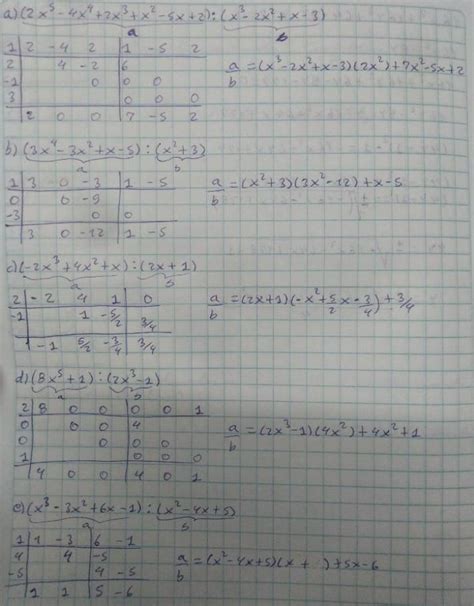 a) (2x⁵ - 4x⁴ + 2x³ + x² - 5x + 2) : (x³ - 2x² + x - 3)
a b
1 | 2 -4 2 | 1 -5 2
2 | 4 -2 | 6
-1 | 0 | 0 0
3 | | 0 0 0
2 0 0 | 7 -5 2
a/b = (x³ - 2x² + x - 3)(2x²) + 7x² - 5x + 2
b) (3x⁴ - 3x² + x - 5) : (x² + 3)
a b
1 | 3 0 -3 | 1 -5
0 | 0 -9
-3 | 0 | 0
3 0 -12 | 1 -5
a/b = (x² + 3)(3x² - 12) + x - 5
c) (-2x³ + 4x² + x) : (2x + 1)
a b
2 | -2 4 1 | 0
-1 | 1 -5/2 | 3/4
-1 5/2 -3/4 | 3/4
a/b = (2x + 1)(-x² + 5/2 x - 3/4) + 3/4
d) (8x⁵ + 1) : (2x³ - 1)
a b
2 | 8 0 0 | 0 0 1
0 | 0 0 | 4
0 | 0 | 0 0
1 | | 0 0 0
4 0 0 | 4 0 1
a/b = (2x³ - 1)(4x²) + 4x² + 1
e) (x³ - 3x² + 6x - 1) : (x² - 4x + 5)
a b
1 | 1 -3 | 6 -1
4 | 4 | -5
-5 | | 4 -5
1 1 | 5 -6
a/b = (x² - 4x + 5)(x + ) + 5x - 6